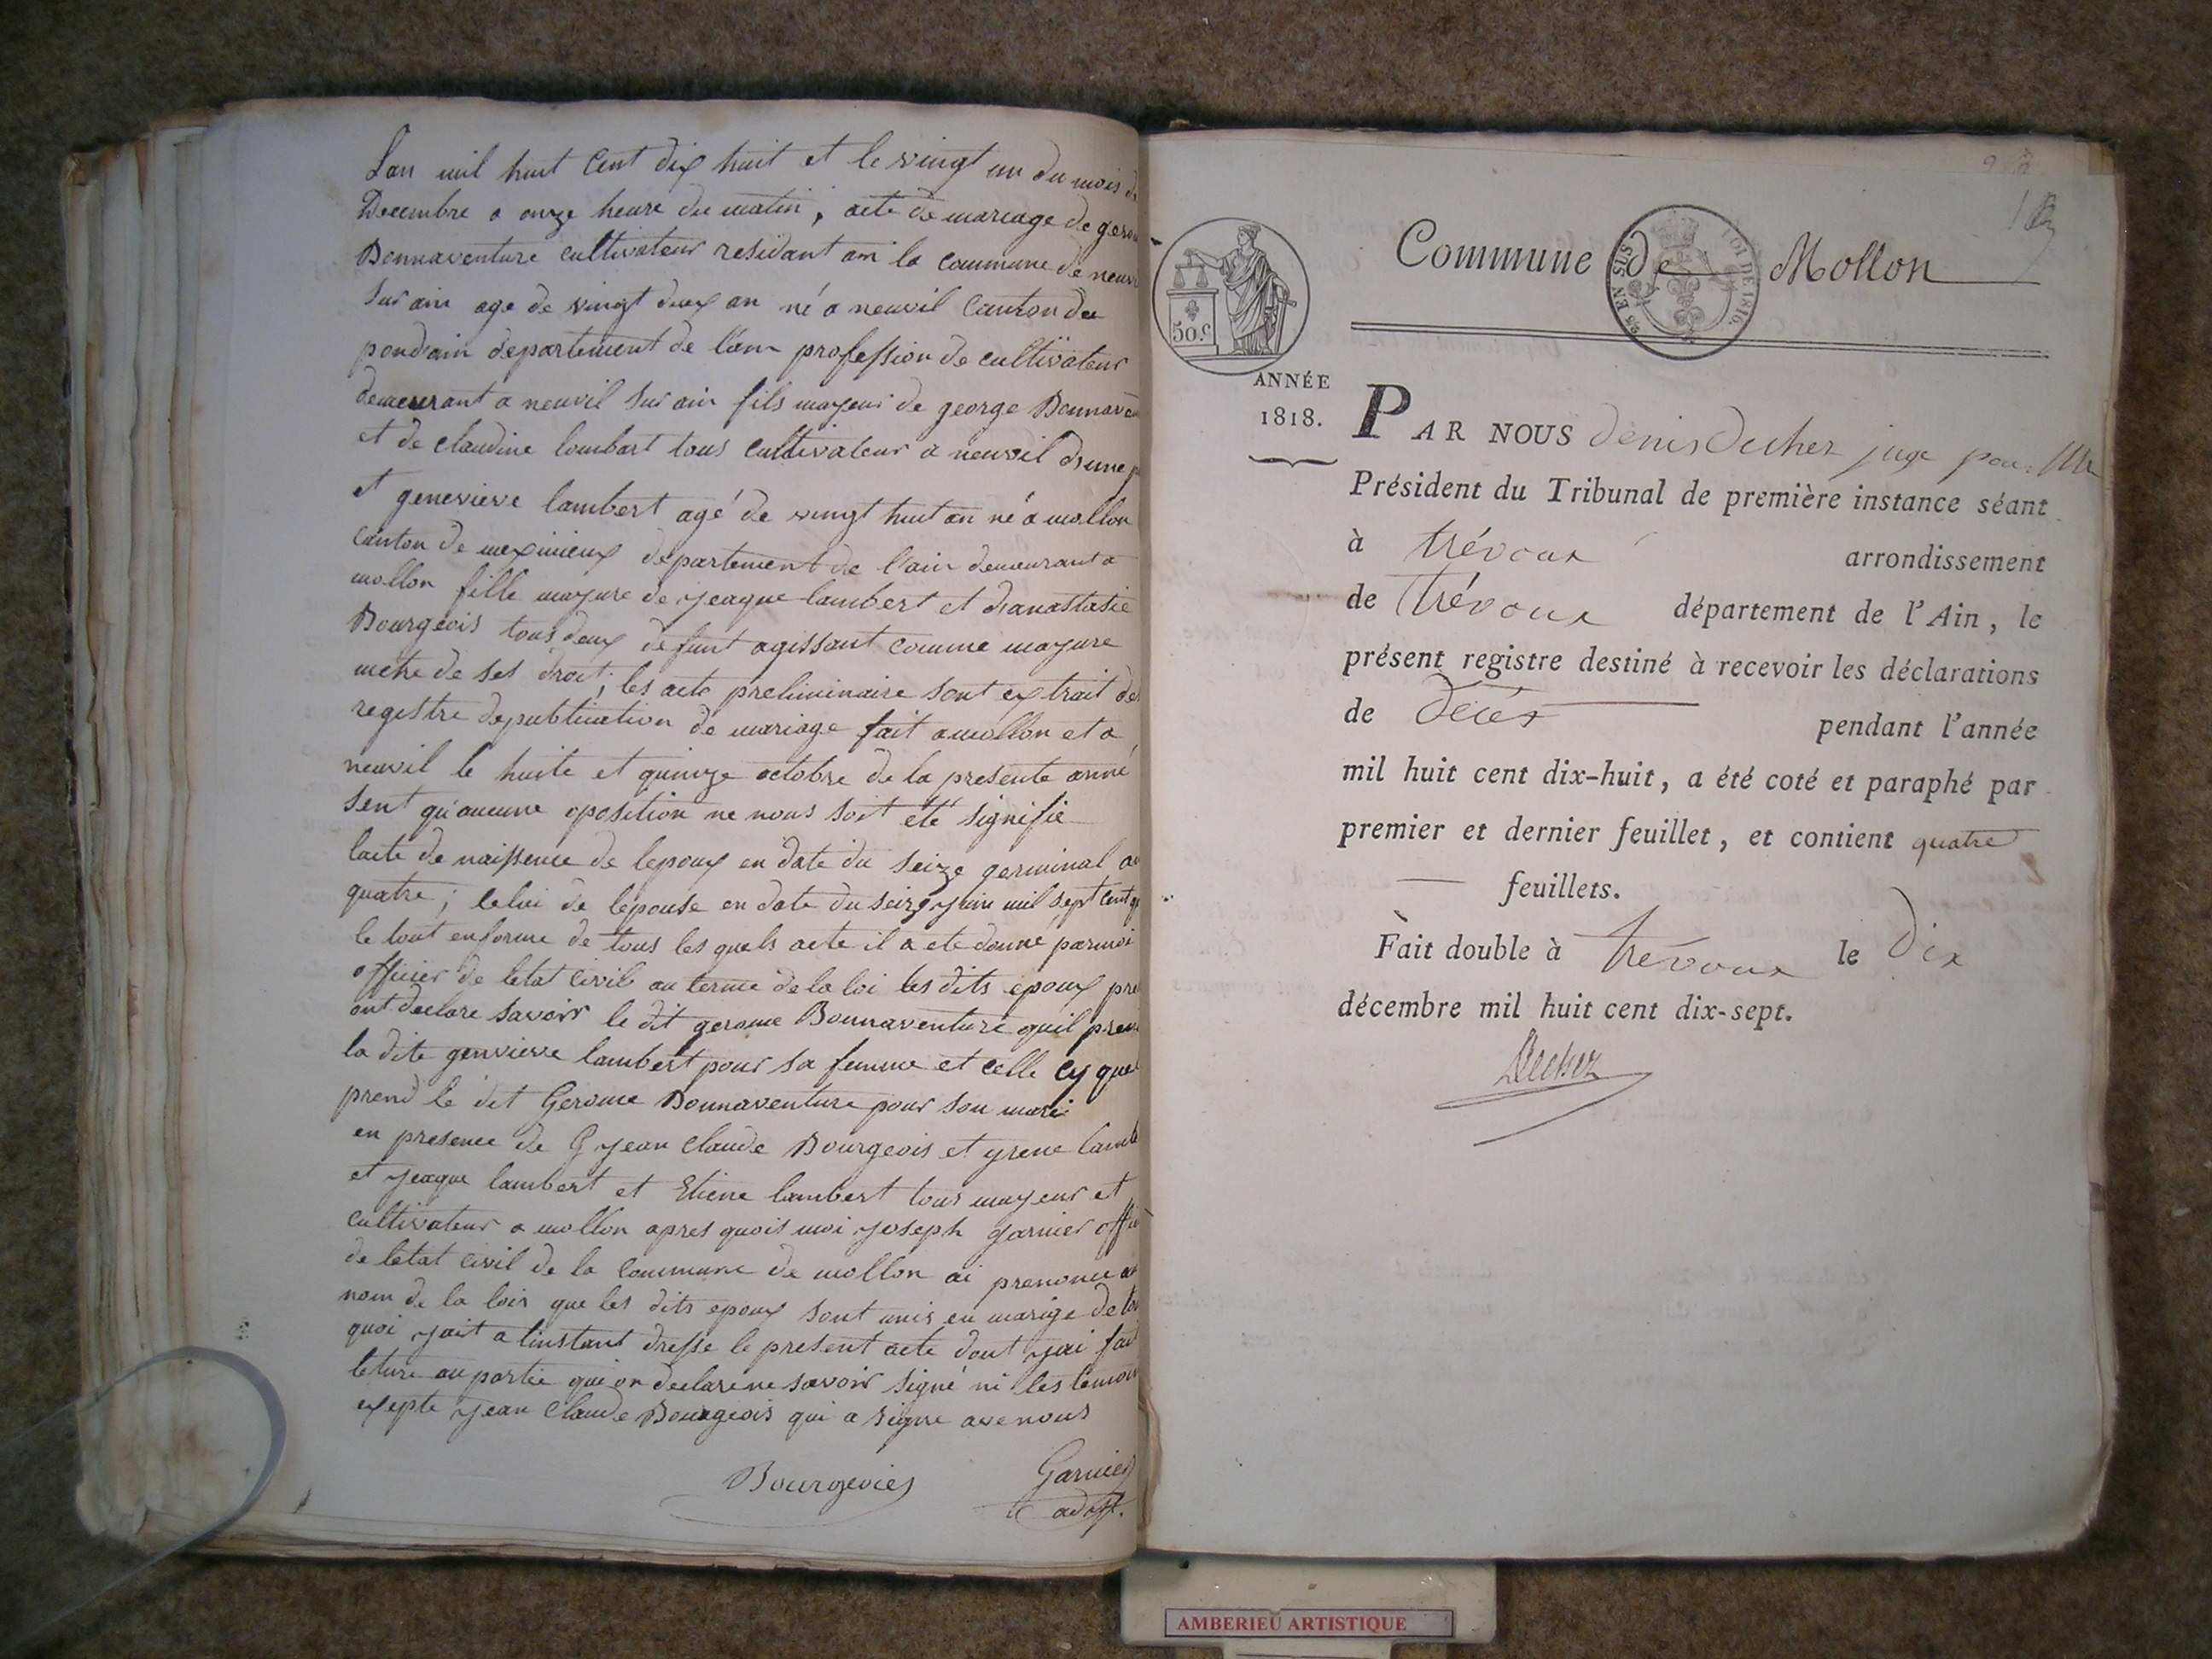 Lan mil huit Cent dix huit et le vingt un du mois de
Decembre a onze heure du matin, acte de mareage de gerom
Bonnaventure cultivateur residant an la commune de neuvi
sur ain age de vingt deux an né a neuvil Canton du
pondain departement de lain profession de cultivateur
demeurant a neuvil sur ain fils mayeur de george Bonnaven
et de claudine lombart tous cultivateur a neuvil d'une p
et genevieve lambert agé de vingt huit an né a mollon
Canton de meximieux departement de l'ain demeurant a
mollon fille mayure de yeaque lambert et d'anastasie
Bourgeois tous deux defunt agissant comme mayure
metre de ses droit; les acte preliminaire sont extrait de
registre de publication de mariage fait a mollon et a
neuvil le huite et quinze octobre de la presente anné
sent qu'aucune oposition ne nous soit été signifié
lacte de naissence de lepoux en date du seize germinal an
quatre; celui de lepouse en date du seize yuin mil sept cent q
le tout en forme de tous les quels acte il a ete donné par moi
officier de letat civil au terme de la loi les dits epoux pre
ont declare savoir le dit gerome Bonnaventure quil pren
la dite genvieve lambert pour sa femme et celle cy quel
prend le dit Gerome Bonnaventure pour son mari
en presence de yean Claude Bourgeois et yrene lambe
et yeaque lambert et Etiene lambert tous mayeur et
cultivateur a mollon apres quois moi yoseph garnier offi
de letat civil de la Commune de mollon ai prenonce au
nom de la loir que les dits epoux sont unis en marige de tou
quoi yait a linstant dresse le present acte dont yai fait
leture au partie qui on declare ne savoir signé ni les temoin
exepte yean Claude Bourgeois qui a signe ave nous
Bourgeoies
Garnier
adjt.
1
Commune de Mollon
50.c
LOI DE 1816.
EN SUS
ANNÉE
1818.
PAR NOUS denis Ducher juge pour Mr
Président du Tribunal de première instance séant
à trévoux arrondissement
de trévoux département de l'Ain, le
présent registre destiné à recevoir les déclarations
de décès pendant l'année
mil huit cent dix-huit, a été coté et paraphé par
premier et dernier feuillet, et contient quatre
— feuillets.
Fait double à trévoux le dix
décembre mil huit cent dix-sept.
Ducher
AMBERIEU ARTISTIQUE